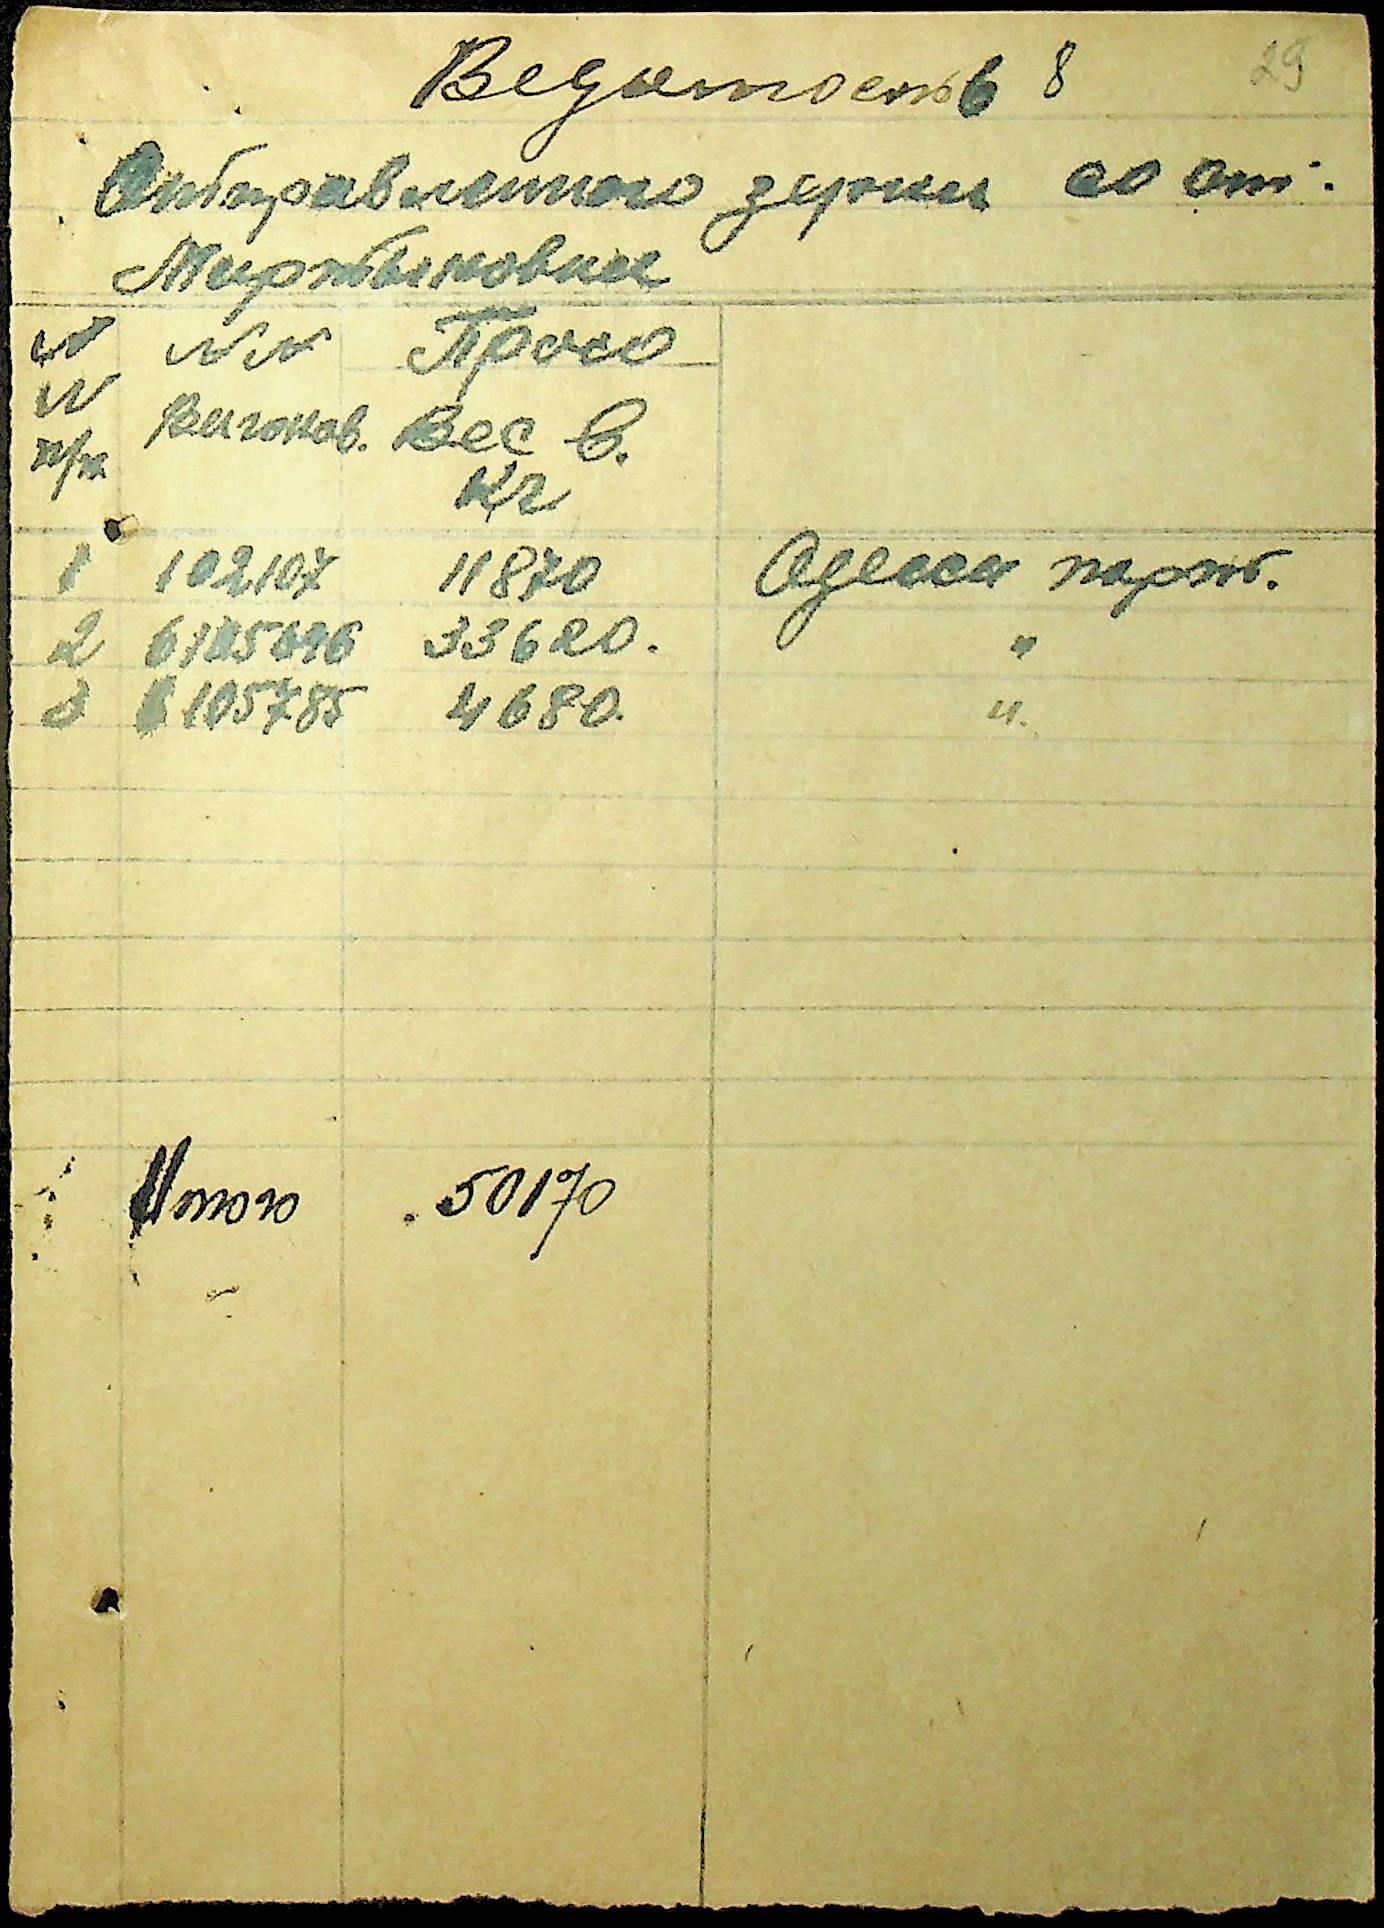 Ведомость 8
29
Отправленного зерна со ст.
Мартыновка
№ №№ Просо
№ вагонов. Вес в.
п/п кг
1 102107 11870 Одесса порт.
2 6105696 33620. "
3 6105785 4680. "
Итого 50170